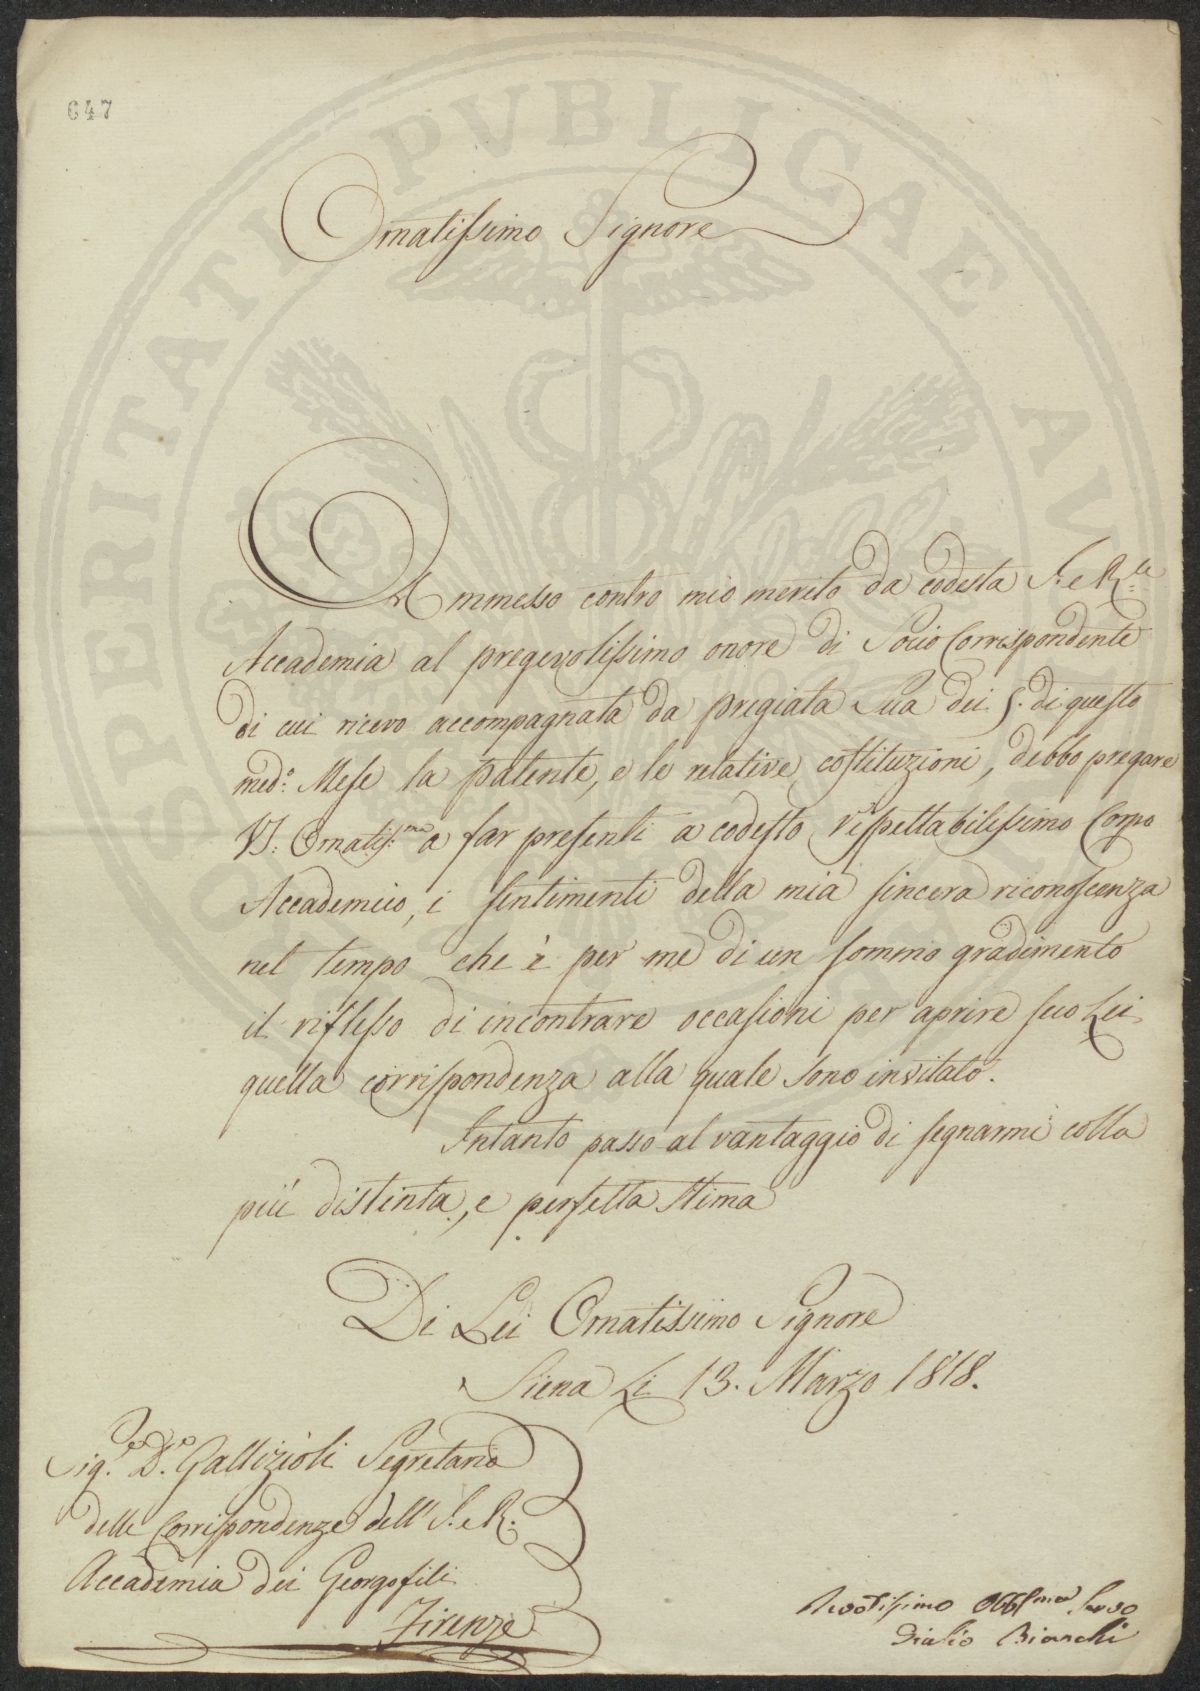 647
PROSPERITATI PVBLICAE AVGENDAE
Ornatissimo Signore
Ammesso contro mio merito da codesta I. e R.le
Accademia al pregevolissimo onore di Socio Corrispondente
di cui ricevo accompagnata da pregiata Sua dei 5. di questo
med.o Mese la patente, e le relative costituzioni, debbo pregare
VS: Ornatis:ma a far presenti a codesto rispettabilissimo Corpo
Accademico, i sentimenti della mia sincera riconoscenza
nel tempo che è per me di un sommo gradimento
il riflesso di incontrare occasioni per aprire seco Lei
quella corrispondenza alla quale sono invitato.
Intanto passo al vantaggio di segnarmi colla
più distinta, e perfetta stima
Di Lei Ornatissimo Signore
Siena Li 13. Marzo 1818.
Sig.re D.re Gallizioli Segretario
delle Corrispondenze dell' I. e R.
Accademia dei Georgofili
Firenze
Devotissimo Obbl.mo Servo
Bianchi